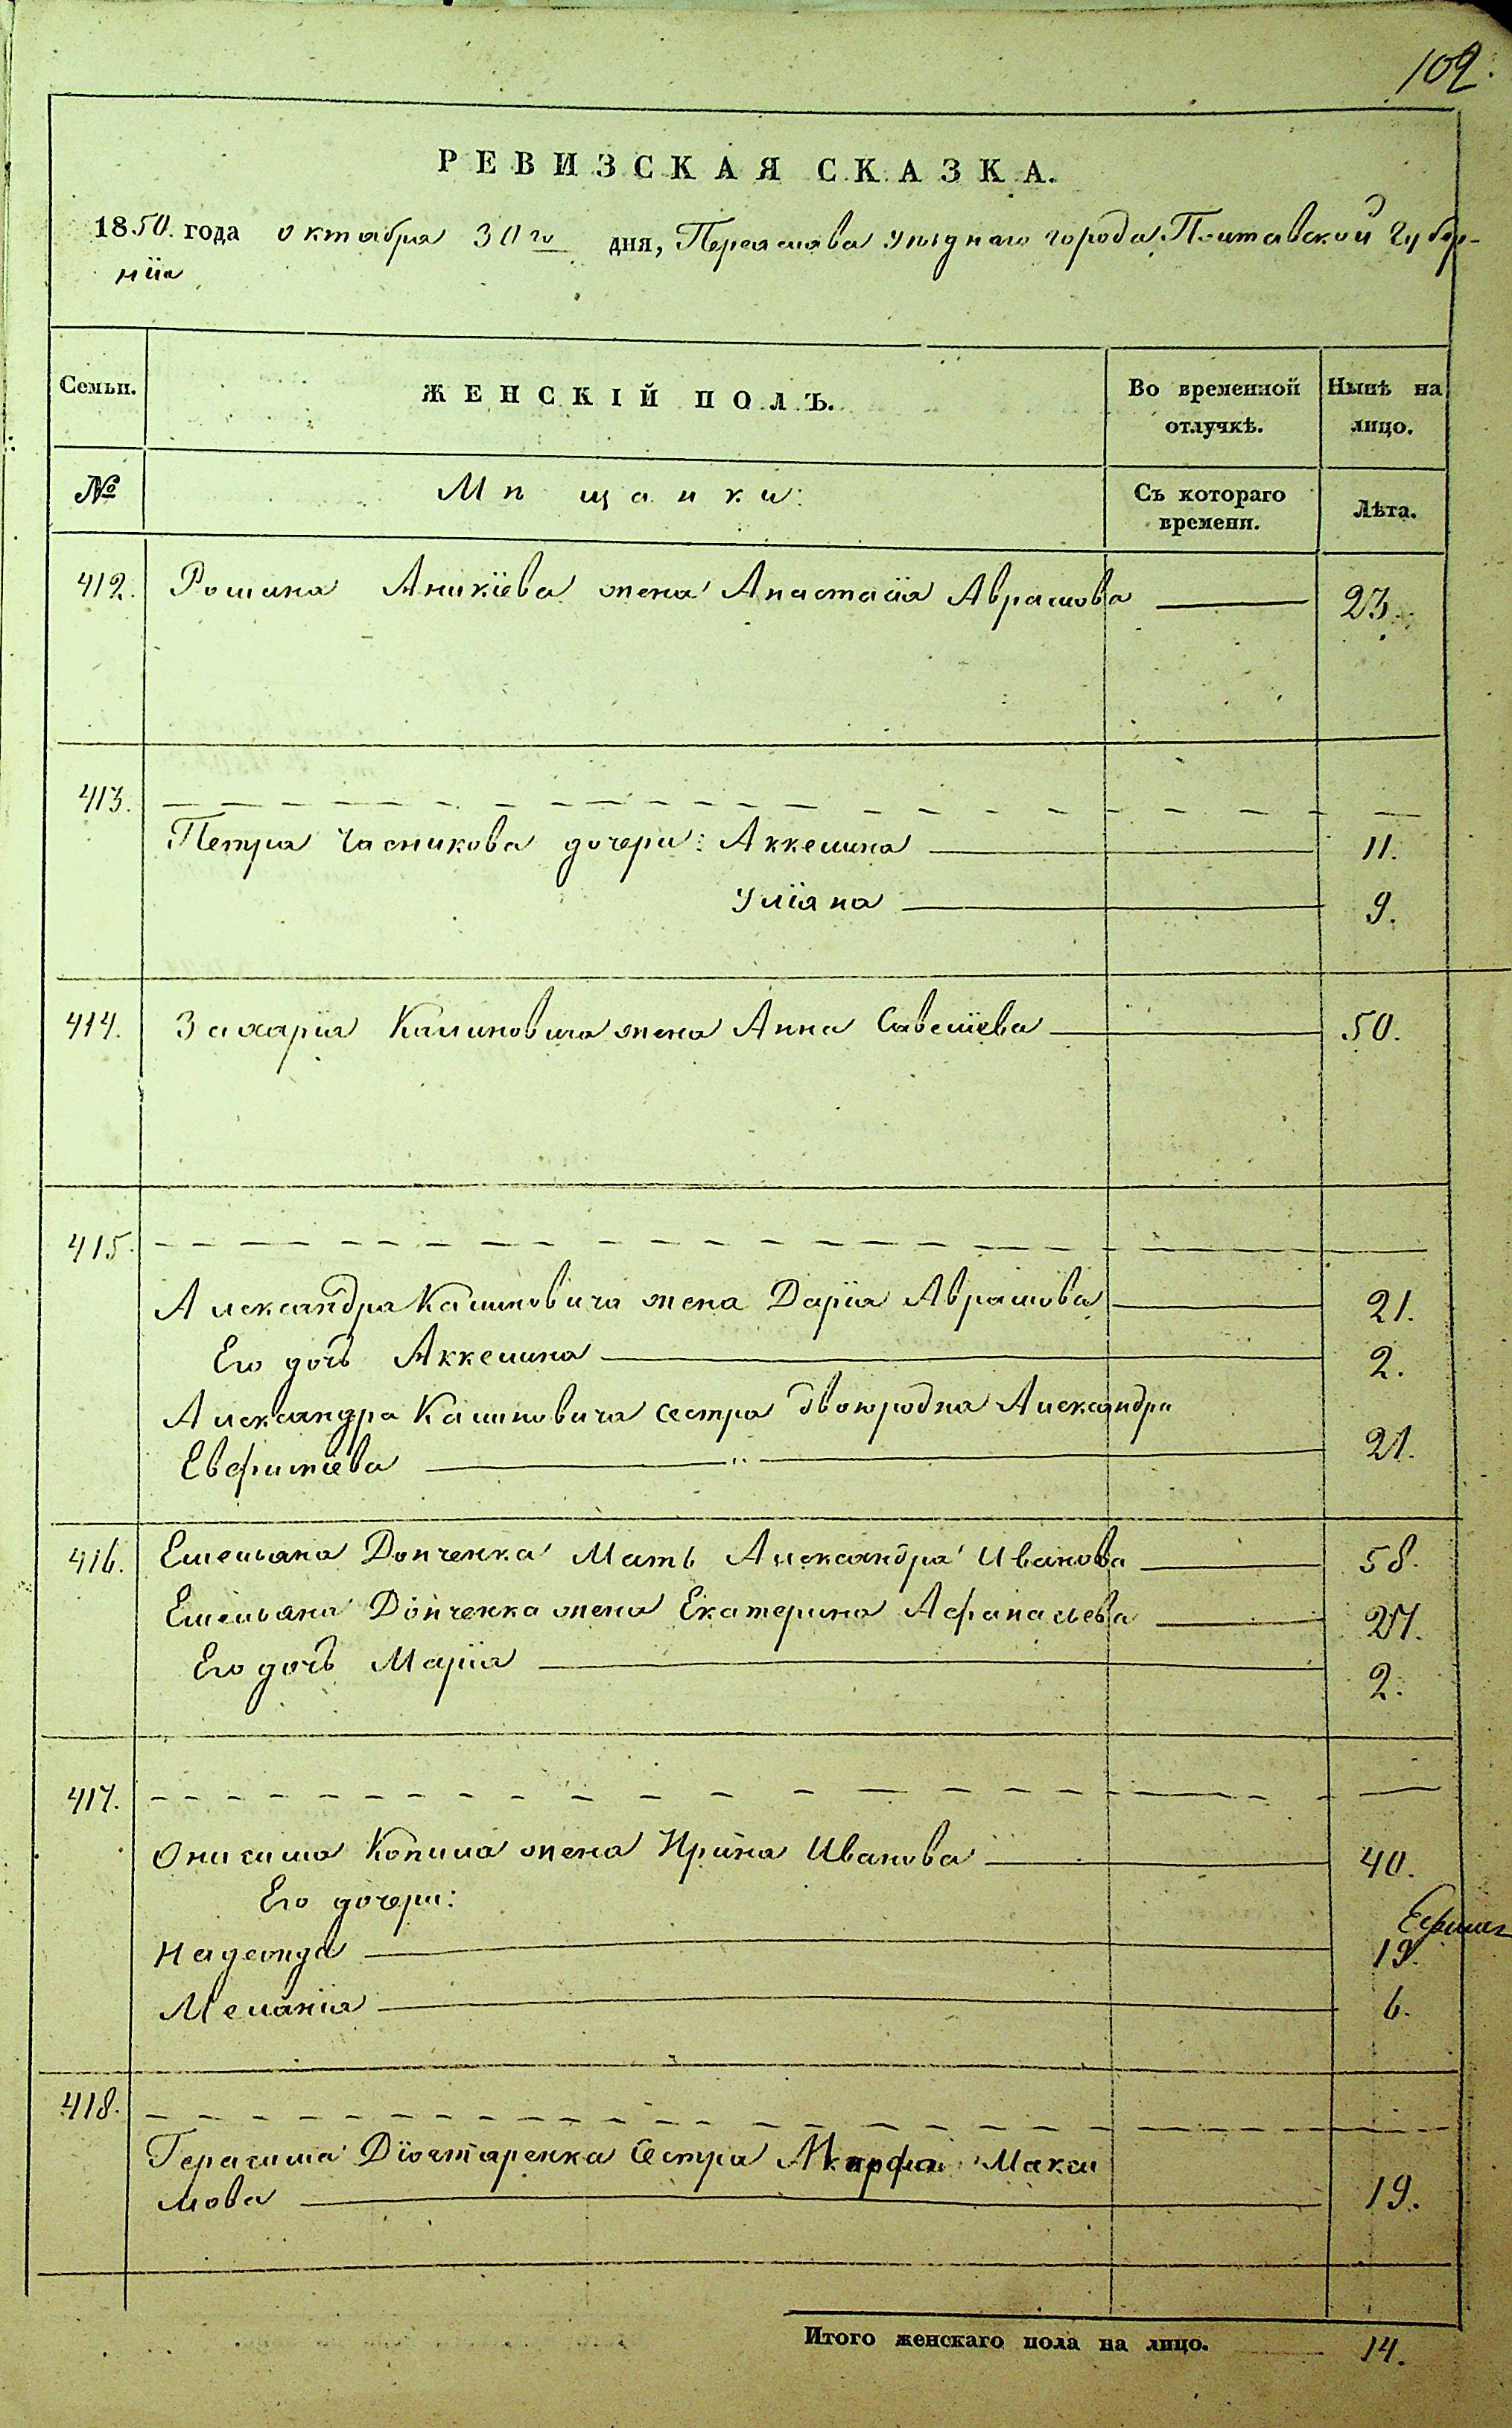 102.
РЕВИЗСКАЯ СКАЗКА.
1850. года октября 30го дня, Переяслава уѣзднаго города, Полтавской Губер-
нiи
Семьи. ЖЕНСКІЙ ПОЛЪ. Во временной отлучкѣ. Нынѣ на лицо.
№ Мѣщанки: Съ котораго времени. Лѣта.
412. Романа Аникіева жена Анастасія Абрамова 23.
413.
Петра Часникова дочери: Аккелина 11.
Уліяна 9.
414. Захарія Калиновича жена Анна Савеліева 50.
415.
Александра Калиновича жена Дарія Абрамова 21.
Его дочь Аккелина 2.
Александра Калиновича сестра двоюродна Александра
Евфиміева 21.
416. Емельяна Донченка Мать Александра Иванова 58.
Емельяна Донченка жена Екатерина Афанасьева 27.
Его дочь Марія 2.
417.
Онисима Копила жена Ирина Иванова 40.
Его дочери:
Надежда 19.
Меланія 6.
418.
Герасима Діогтяренка Сестра Марфа Макси
мова 19.
Итого женскаго пола на лицо. 14.